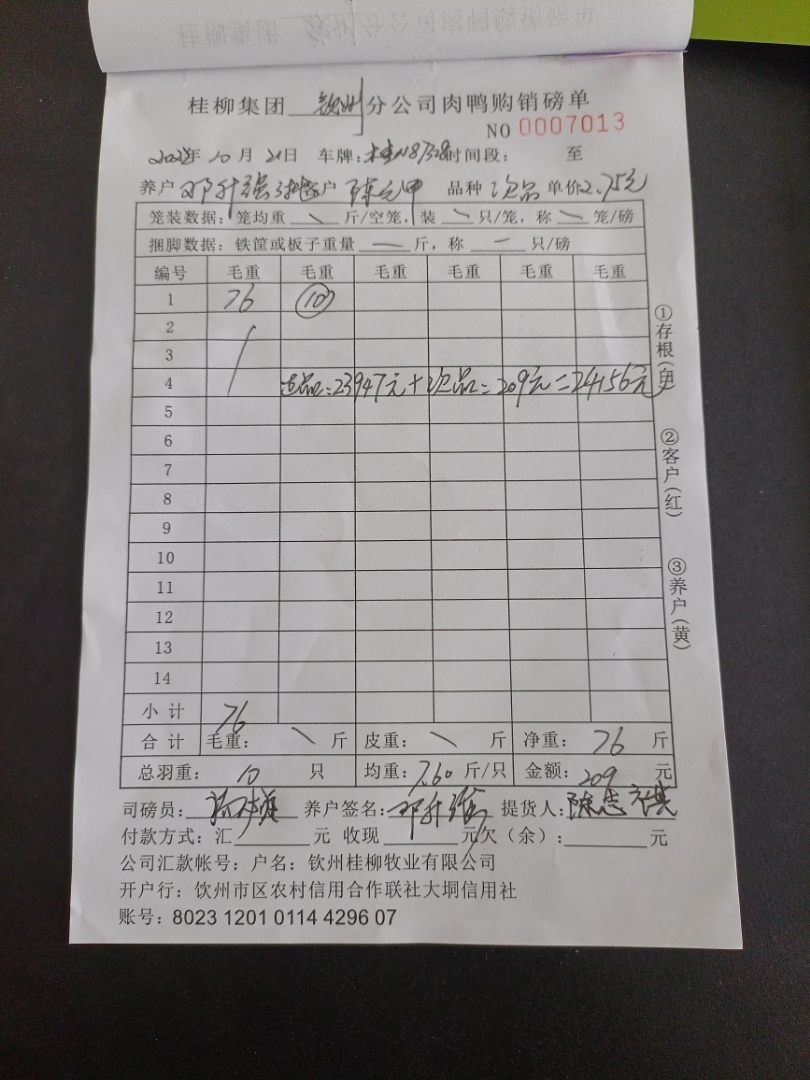 桂柳集团 钦州 分公司肉鸭购销磅单
NO 0007013
年 10 月 21 日 车牌: 时间段: 至
养户 邓升强 户 陈元甲 品种 次品 单价 2.75元
笼装数据: 笼均重 斤/空笼, 装 只/笼, 称 笼/磅
捆脚数据: 铁筐或板子重量 斤, 称 只/磅
编号 毛重 毛重 毛重 毛重 毛重 毛重
1 76 10
2
3
4 正品:23947元+次品=209元=24156元
5
6
7
8
9
10
11
12
13
14
小 计 76
合 计 毛重: 斤 皮重: 斤 净重: 76 斤
总羽重: 10 只 均重: 7.60 斤/只 金额: 209 元
司磅员: 养户签名: 邓升强 提货人:
付款方式: 汇 元 收现 元欠(余): 元
公司汇款帐号: 户名: 钦州桂柳牧业有限公司
开户行: 钦州市区农村信用合作联社大垌信用社
账号: 8023 1201 0114 4296 07
①存根(白)
②客户(红)
③养户(黄)